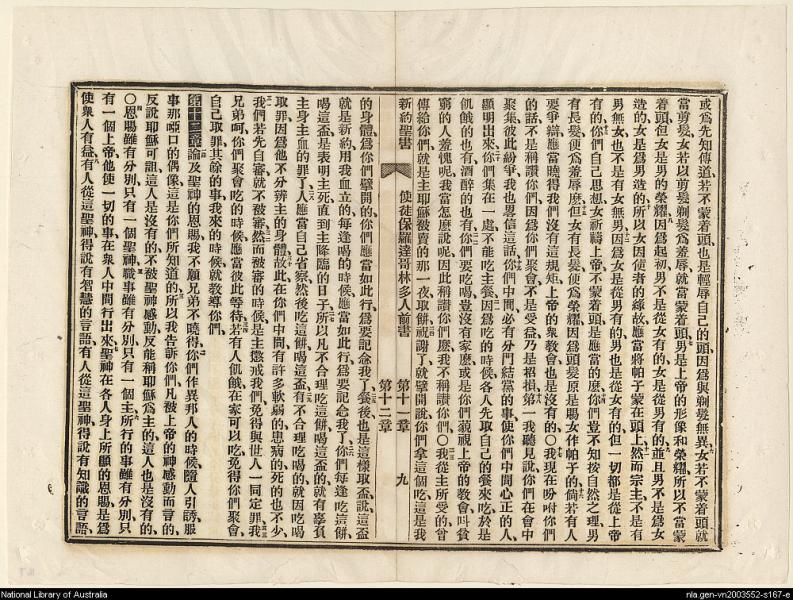 或爲先知傳道若不蒙着頭也是輕辱自己的頭因爲與剃髮無異女若不蒙着頭就
當剪髮女若以剪髮剃髮爲羞辱就當蒙着頭男是上帝的形像和榮耀所以不當蒙
着頭但女是男的榮耀因爲起初男不是從女有的女是從男有的並且男不是爲女
造的女是爲男造的所以女因使者的緣故應當將帕子蒙在頭上然而宗主不是有
男無女也不是有女無男因爲女是從男有的男也是從女有的但一切都是從上帝
有的你們自己思想女祈禱上帝不蒙着頭是應當的麼你們豈不知按自然之理男
有長髮便爲羞辱麼但女有長髮便爲榮耀因爲頭髮原是賜女作帕子的倘若有人
要爭辯應當曉得我們沒有這規矩上帝的衆教會也是沒有的〇我現在吩咐你們
的話不是稱讚你們因爲你們聚會不是受益乃是招損第一我聽見說你們在會中
聚集彼此紛爭我也畧信這話你們中間必有分門結黨的事使你們中間心正的人
顯明出來你們集在一處不能吃主餐因爲吃的時候各人先取自己的餐來吃於是
飢餓的也有酒醉的也有你們要吃喝豈沒有家麼或是你們藐視上帝的教會叫貧
窮的人羞愧呢我當怎麼說呢因此稱讚你們麼我不稱讚你們〇我從主所受的曾
傳給你們就是主耶穌被賣的那一夜取餅祝謝了就擘開說你們拿這個吃這是我
新約聖書 使徒保羅達哥林多人前書 第十一章 第十二章 九
的身體爲你們擘開的你們應當如此行爲要記念我了餐後也是這樣取盃說這盃
就是新約用我血立的每逢喝的時候應當如此行爲要記念我了你們每逢吃這餅
喝這盃是表明主死直到主降臨的日子所以凡不合理吃這餅喝這盃的就有辜負
主身主血的罪了人應當自己省察然後吃這餅喝這盃有不合理吃喝的就因吃喝
取罪因爲他不分辨主的身體故此在你們中間有許多軟弱的患病的死的也不少
我們若先自審就不被審然而被審的時候是主懲戒我們免得與世人一同定罪我
兄弟呵你們聚會吃的時候應當彼此等待若有人飢餓在家可以吃免得你們聚會
自己取罪其餘的事我來的時候就教導你們
第十二章論及聖神的恩賜我不願兄弟不曉得你們作異邦人的時候隨人引誘服
事那啞口的偶像這是你們所知道的所以我告訴你們凡被上帝的神感動而言的
反說耶穌可詛這人是沒有的不被聖神感動反能稱耶穌爲主的這人也是沒有的
〇恩賜雖有分別只有一個聖神職事雖有分別只有一個主所行的事雖有分別只
有一個上帝他使一切的事在衆人中間行出來聖神在各人身上所顯的恩賜是爲
使衆人有益有人從這聖神得說有智慧的言語有人從這聖神得說有知識的言語
National Library of Australia
nla.gen-vn2003552-s167-e